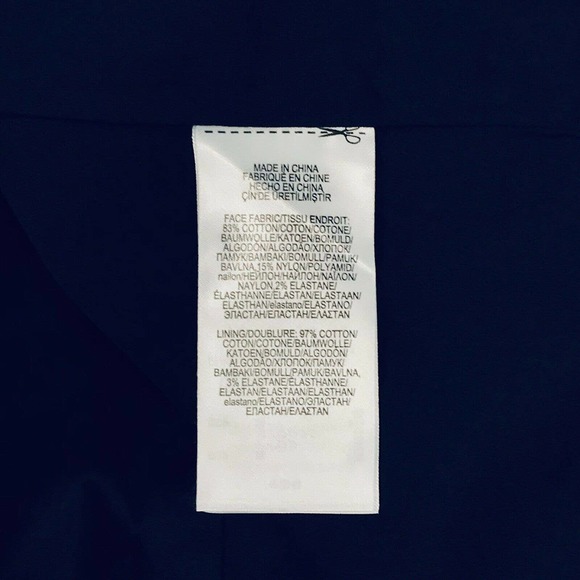 MADE IN CHINA
FABRIQUÉ EN CHINE
HECHO EN CHINA
ÇİN'DE ÜRETİLMİŞTİR
FACE FABRIC/TISSU ENDROIT:
83% COTTON/COTON/COTONE/
BAUMWOLLE/KATOEN/BOMULD/
ALGODÓN/ALGODÃO/ХЛОПОК/
ПАМУК/BAMBAKI/BOMULL/PAMUK/
BAVLNA,15% NYLON/POLYAMID/
nailon/НЕЙЛОН/НАЙЛОН/NAÏLON/
NAYLON,2% ELASTANE/
ÉLASTHANNE/ELASTAN/ELASTAAN/
ELASTHAN/elastano/ELASTANO/
ЭПАСТАН/ЕЛАСТАН/ΕΛΑΣΤΑΝ
LINING/DOUBLURE: 97% COTTON/
COTON/COTONE/BAUMWOLLE/
KATOEN/BOMULD/ALGODÓN/
ALGODÃO/ХЛОПОК/ПАМУК/
BAMBAKI/BOMULL/PAMUK/BAVLNA,
3% ELASTANE/ÉLASTHANNE/
ELASTAN/ELASTAAN/ELASTHAN/
elastano/ELASTANO/ЭПАСТАН/
ЕПАСТАН/ΕΛΑΣΤΑΝ